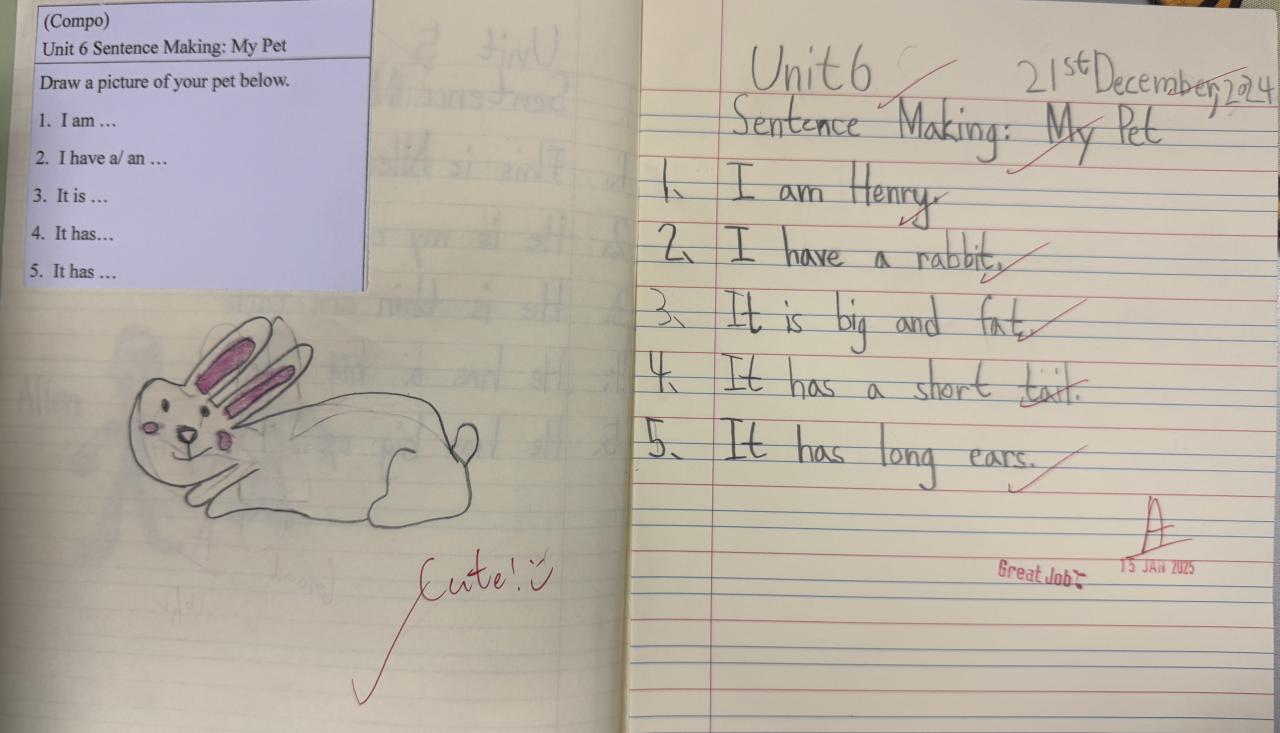 (Compo)
Unit 6 Sentence Making: My Pet
Draw a picture of your pet below.
1. I am ...
2. I have a/ an ...
3. It is ...
4. It has...
5. It has ...
Cute!
Unit 6
21st December, 2024
Sentence Making: My Pet
1、 I am Henry.
2、 I have a rabbit.
3、 It is big and fat.
4、 It has a short tail.
5、 It has long ears.
A
Great Job
15 JAN 2025